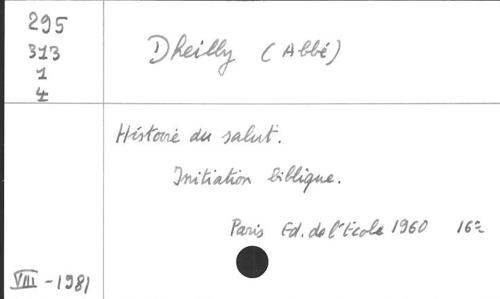 295
313
1
4
Dheilly (Abbé)
Histoire du salut.
Initiation biblique.
Paris Ed. de l'Ecole 1960 16º
VIII - 1981